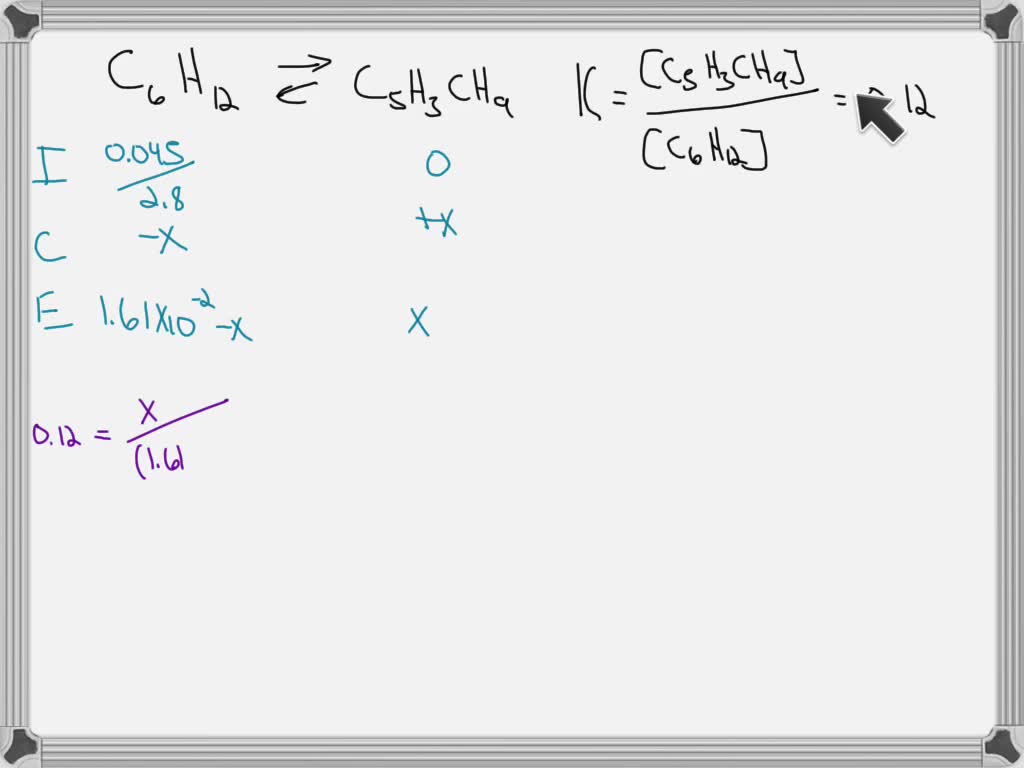 C₆H₁₂ ⇌ C₅H₃CH₉ K = [C₅H₃CH₉] / [C₆H₁₂] = 12
I 0.045 / 2.8 0
C -x +x
E 1.61x10⁻² -x x
0.12 = x / (1.61